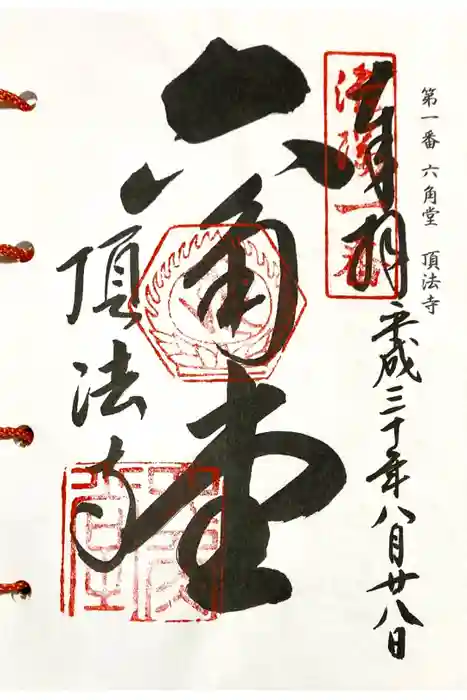 第一番 六角堂 頂法寺
奉拝
平成三十年八月廿八日
洛陽一番
六角堂
頂法寺